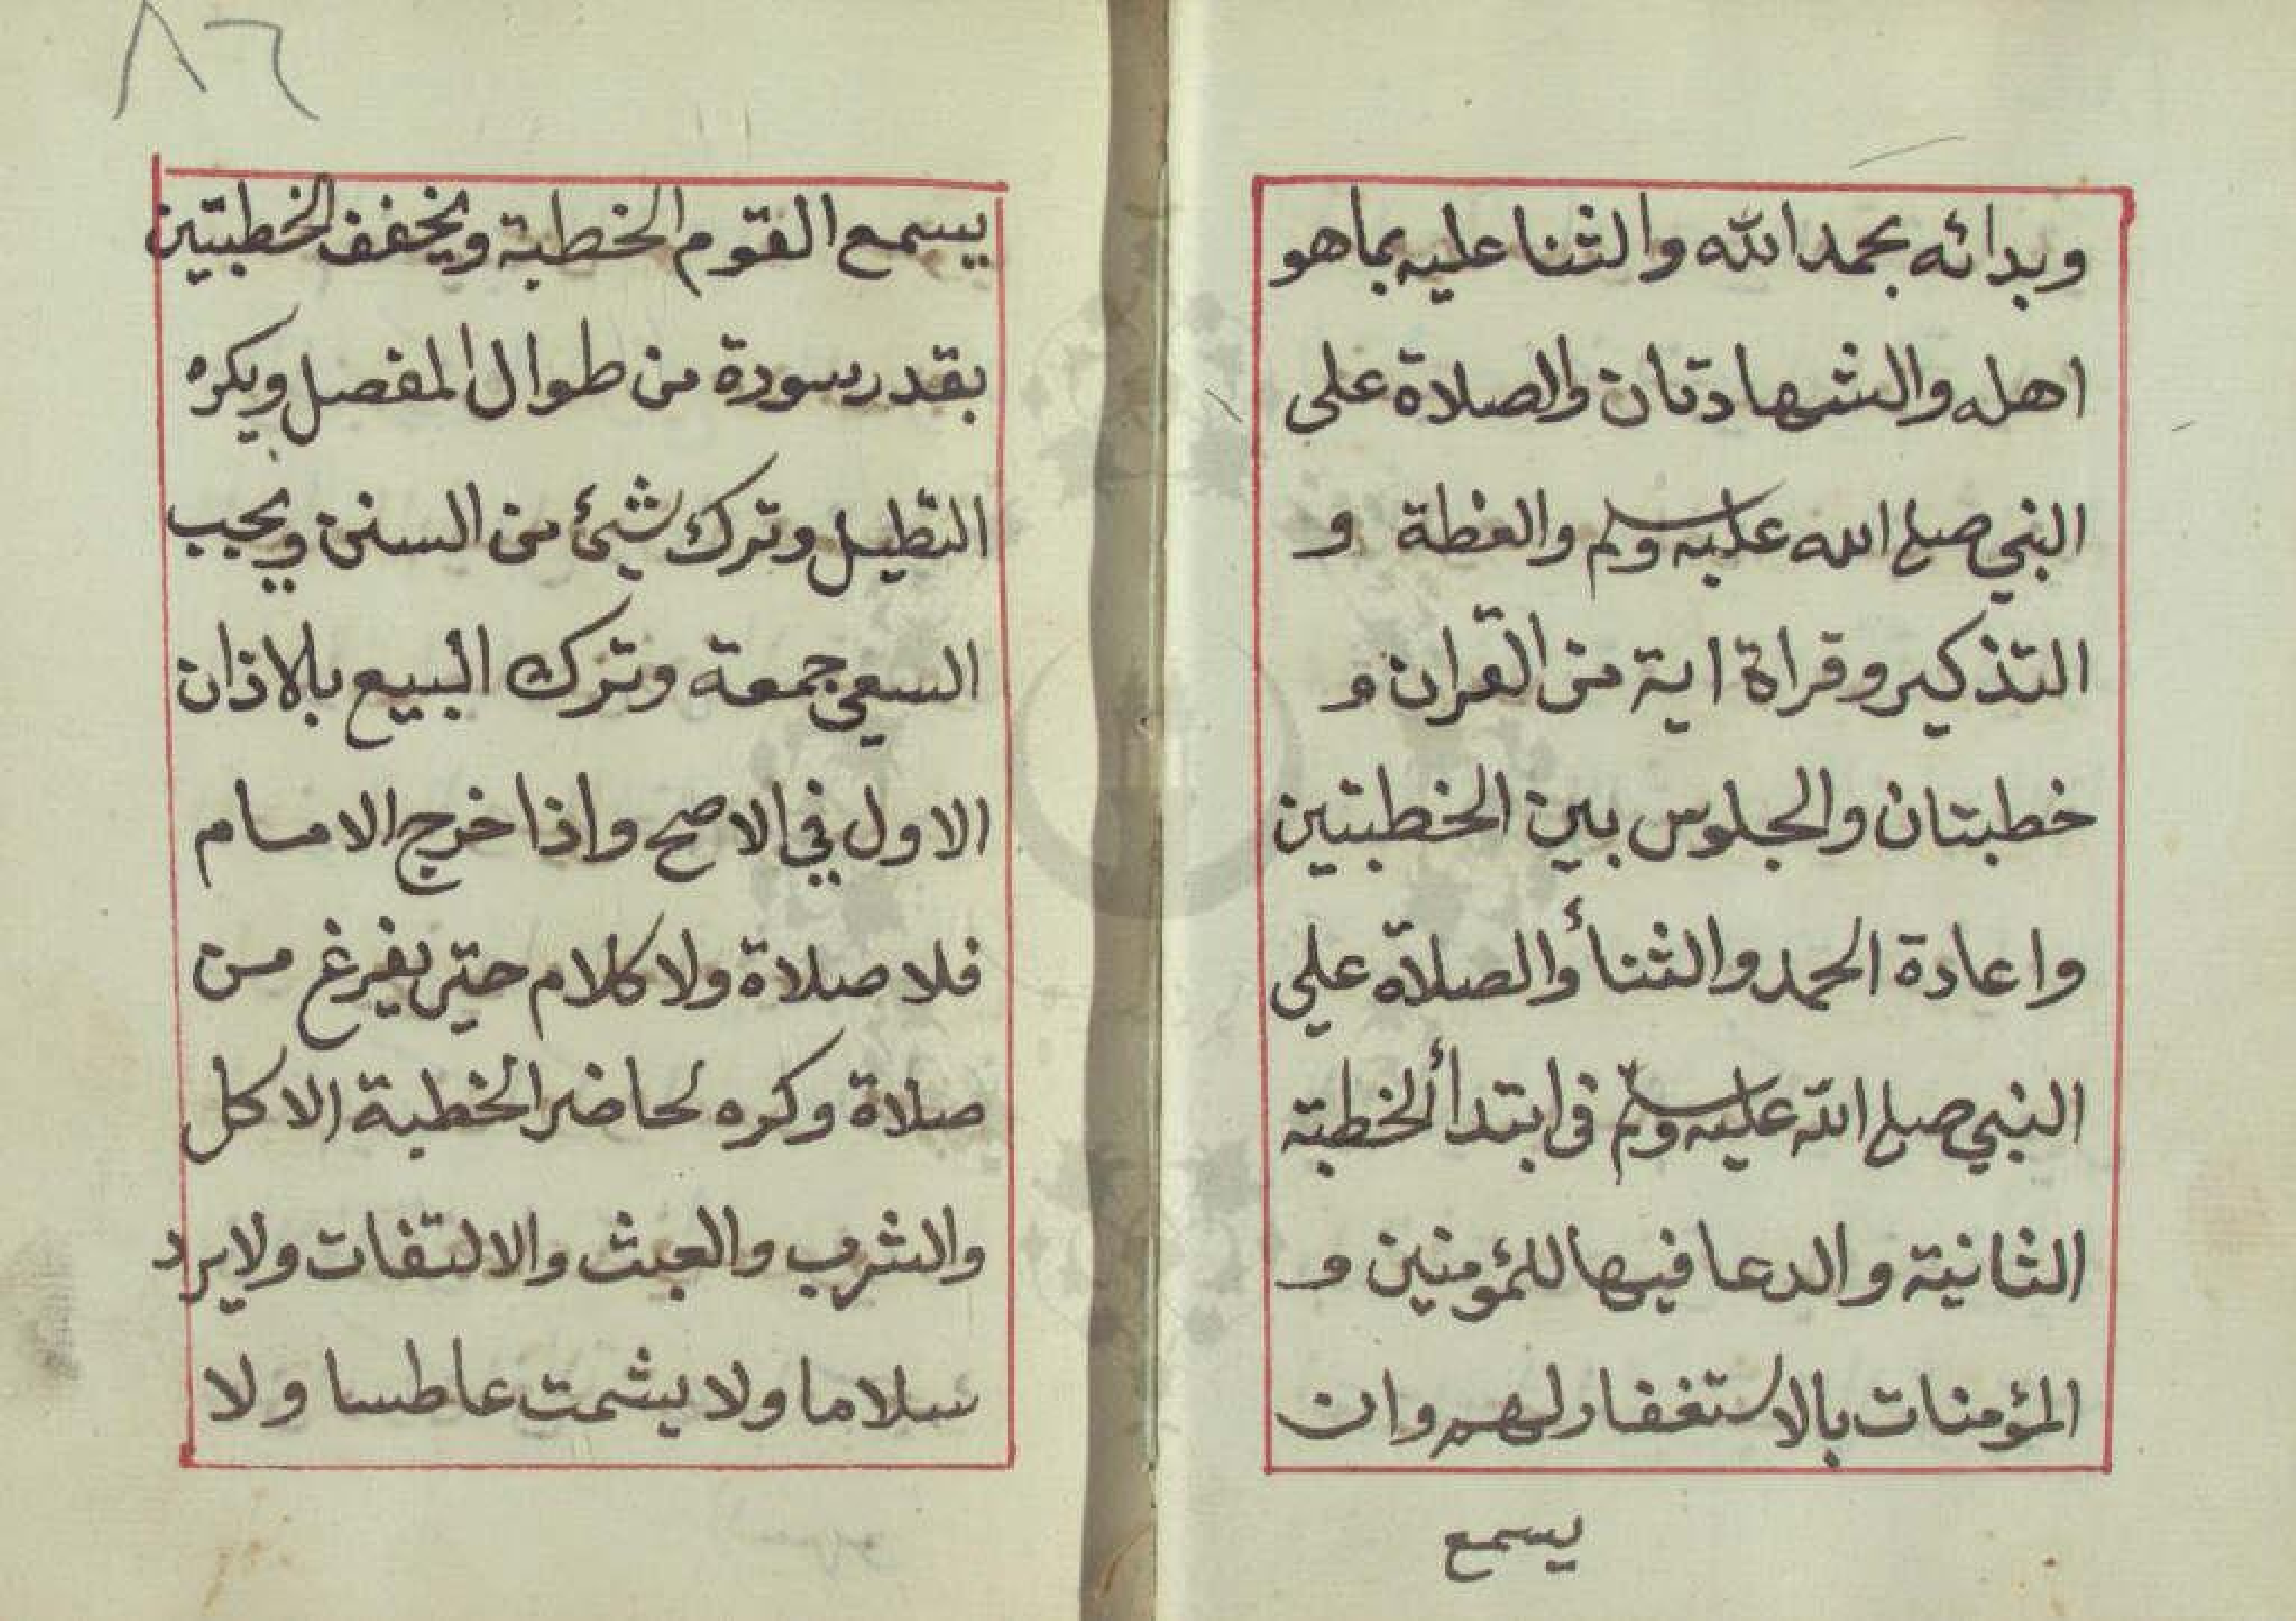 وبدائه بحمد الله والثنا عليه بما هو
اهله والشهادتان والصلاة على
النبي صلى الله عليه وسلم والعظة و
التذكير وقراة اية من القران و
خطبتان والجلوس بين الخطبتين
واعادة الحمد والثنأ والصلاة على
النبي صلى الله عليه وسلم فى ابتدأ الخطبة
الثانية والدعا فيها للمؤمنين و
المؤمنات بالاستغفار لهم وان
يسمع
٨٦
يسمع القوم الخطبة ويخفف الخطبتين
بقدر سورة من طوال المفصل ويكره
التطيل وترك شيئ من السنن ويجب
السعي جمعة وترك البيع بالاذان
الاول في الاصح واذا خرج الامام
فلا صلاة ولا كلام حتى يفرغ من
صلاة وكره لحاضر الخطبة الاكل
والشرب والعبث والالتفات ولا يرد
سلاما ولا يشمت عاطسا ولا